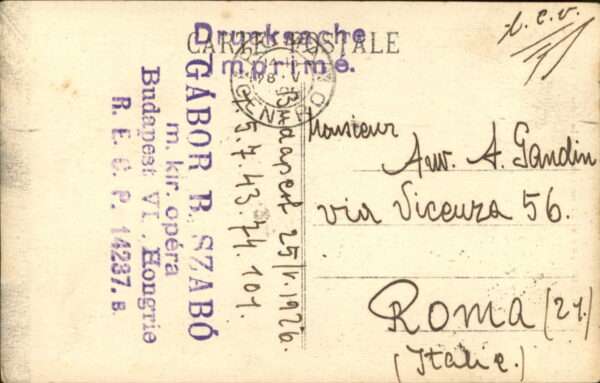 CARTE POSTALE
Drucksache
Imprimé.
GÁBOR B. SZABÓ
m. kir. opéra
Budapest VI., Hongrie
R. E. C. P. 14237. B.
Budapest 25/V. 1926.
5.7.43.74.101.
t. c. v.
Monsieur
Avv. A. Gandin
via Vicenza 56.
Roma (21.)
(Italie.)